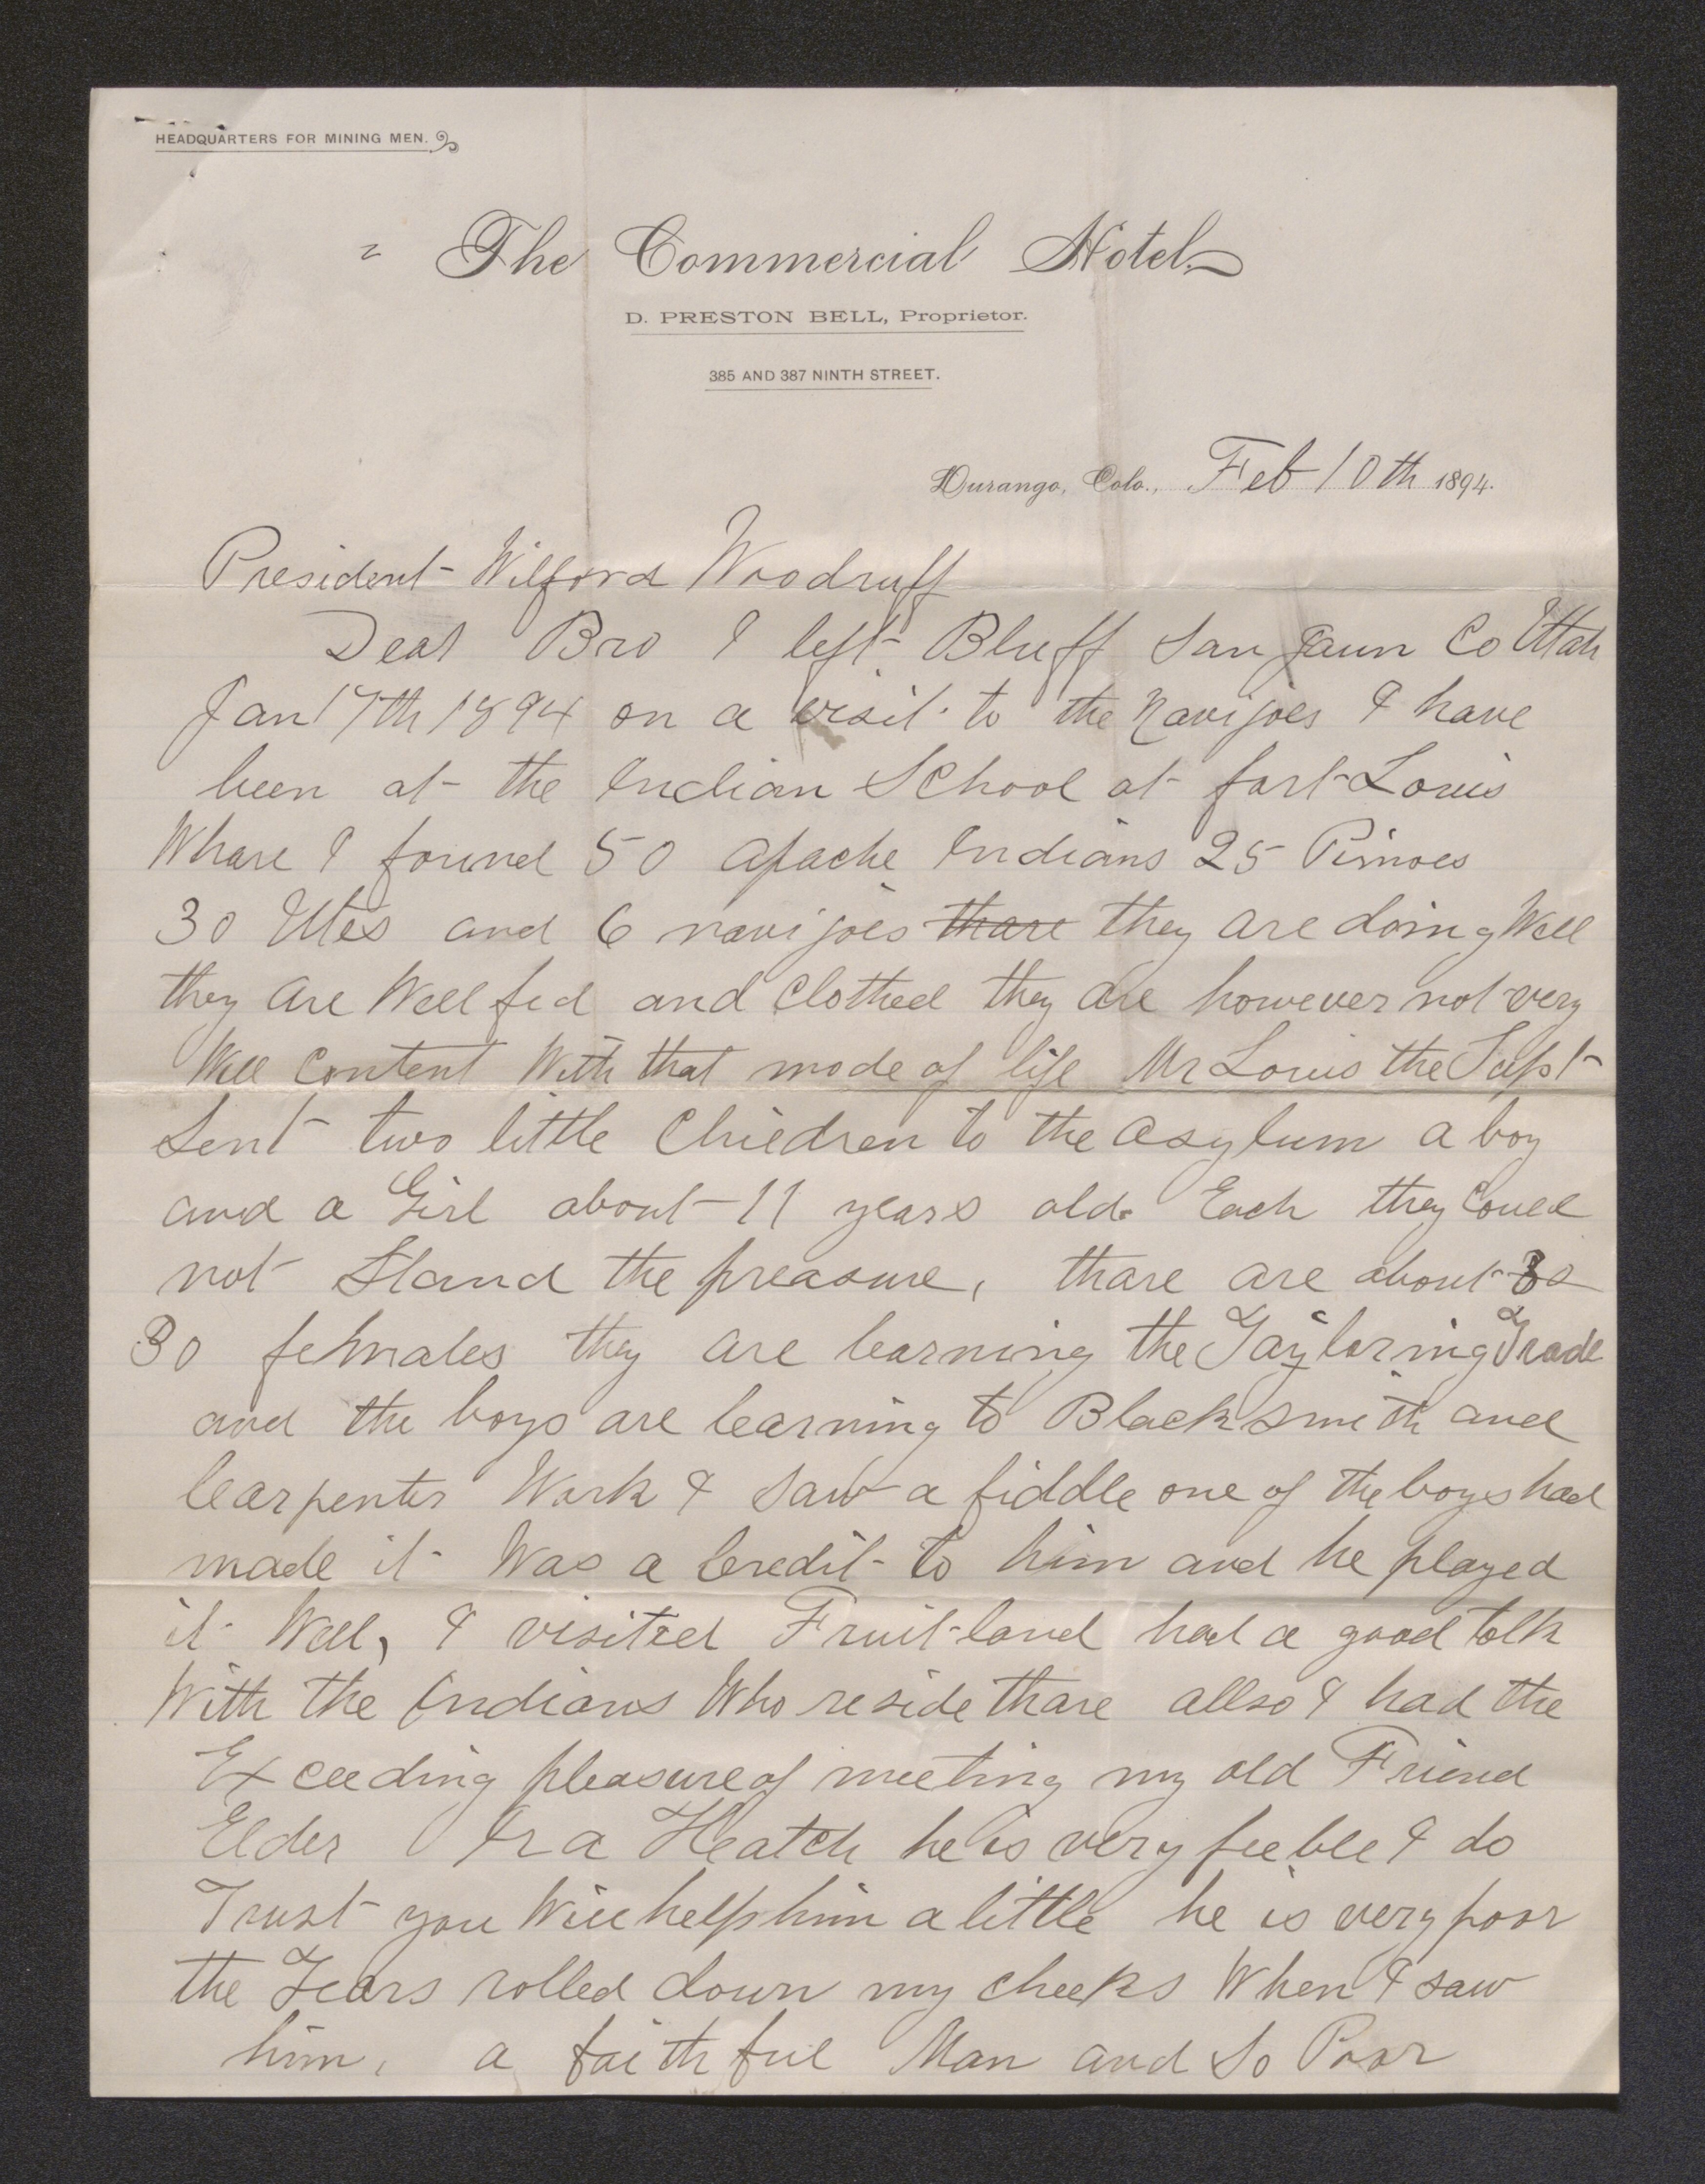 HEADQUARTERS FOR MINING MEN.
The Commercial Hotel.
D. PRESTON BELL, Proprietor.
385 AND 387 NINTH STREET.
Durango, Colo., Feb 10th 1894.
President Wilford Woodruff
Dear Bro I left Bluff San Jaun Co Utah
Jan 17th 1894 on a visit to the Navijoes I have
been at the Indian School at fort Louis
Whare I found 50 Apache Indians 25 Pimoes
30 Utes and 6 navijoes thare they are doing Well
they are Well fed and Clothed they are however not very
Well Content With that mode of life Mr Louis the Supt
Sent two little Children to the asylum a boy
and a Girl about 11 years old. Each they Could
not Stand the preasure, thare are about 30
30 females they are learning the Tayloring Trade
and the boys are learning to Blacksmith and
Carpenter Work I Saw a fiddle one of the boys had
made it Was a Credit to him and he played
it Well, I visited Fruitland had a good talk
With the Indians Who reside thare allso I had the
Exceeding pleasure of meeting my old Friend
Elder Ira Heatch he is very feeble I do
Trust you Will help him a little he is very poor
the Tears rolled down my cheeks When I saw
him, a faithful Man and So Poor